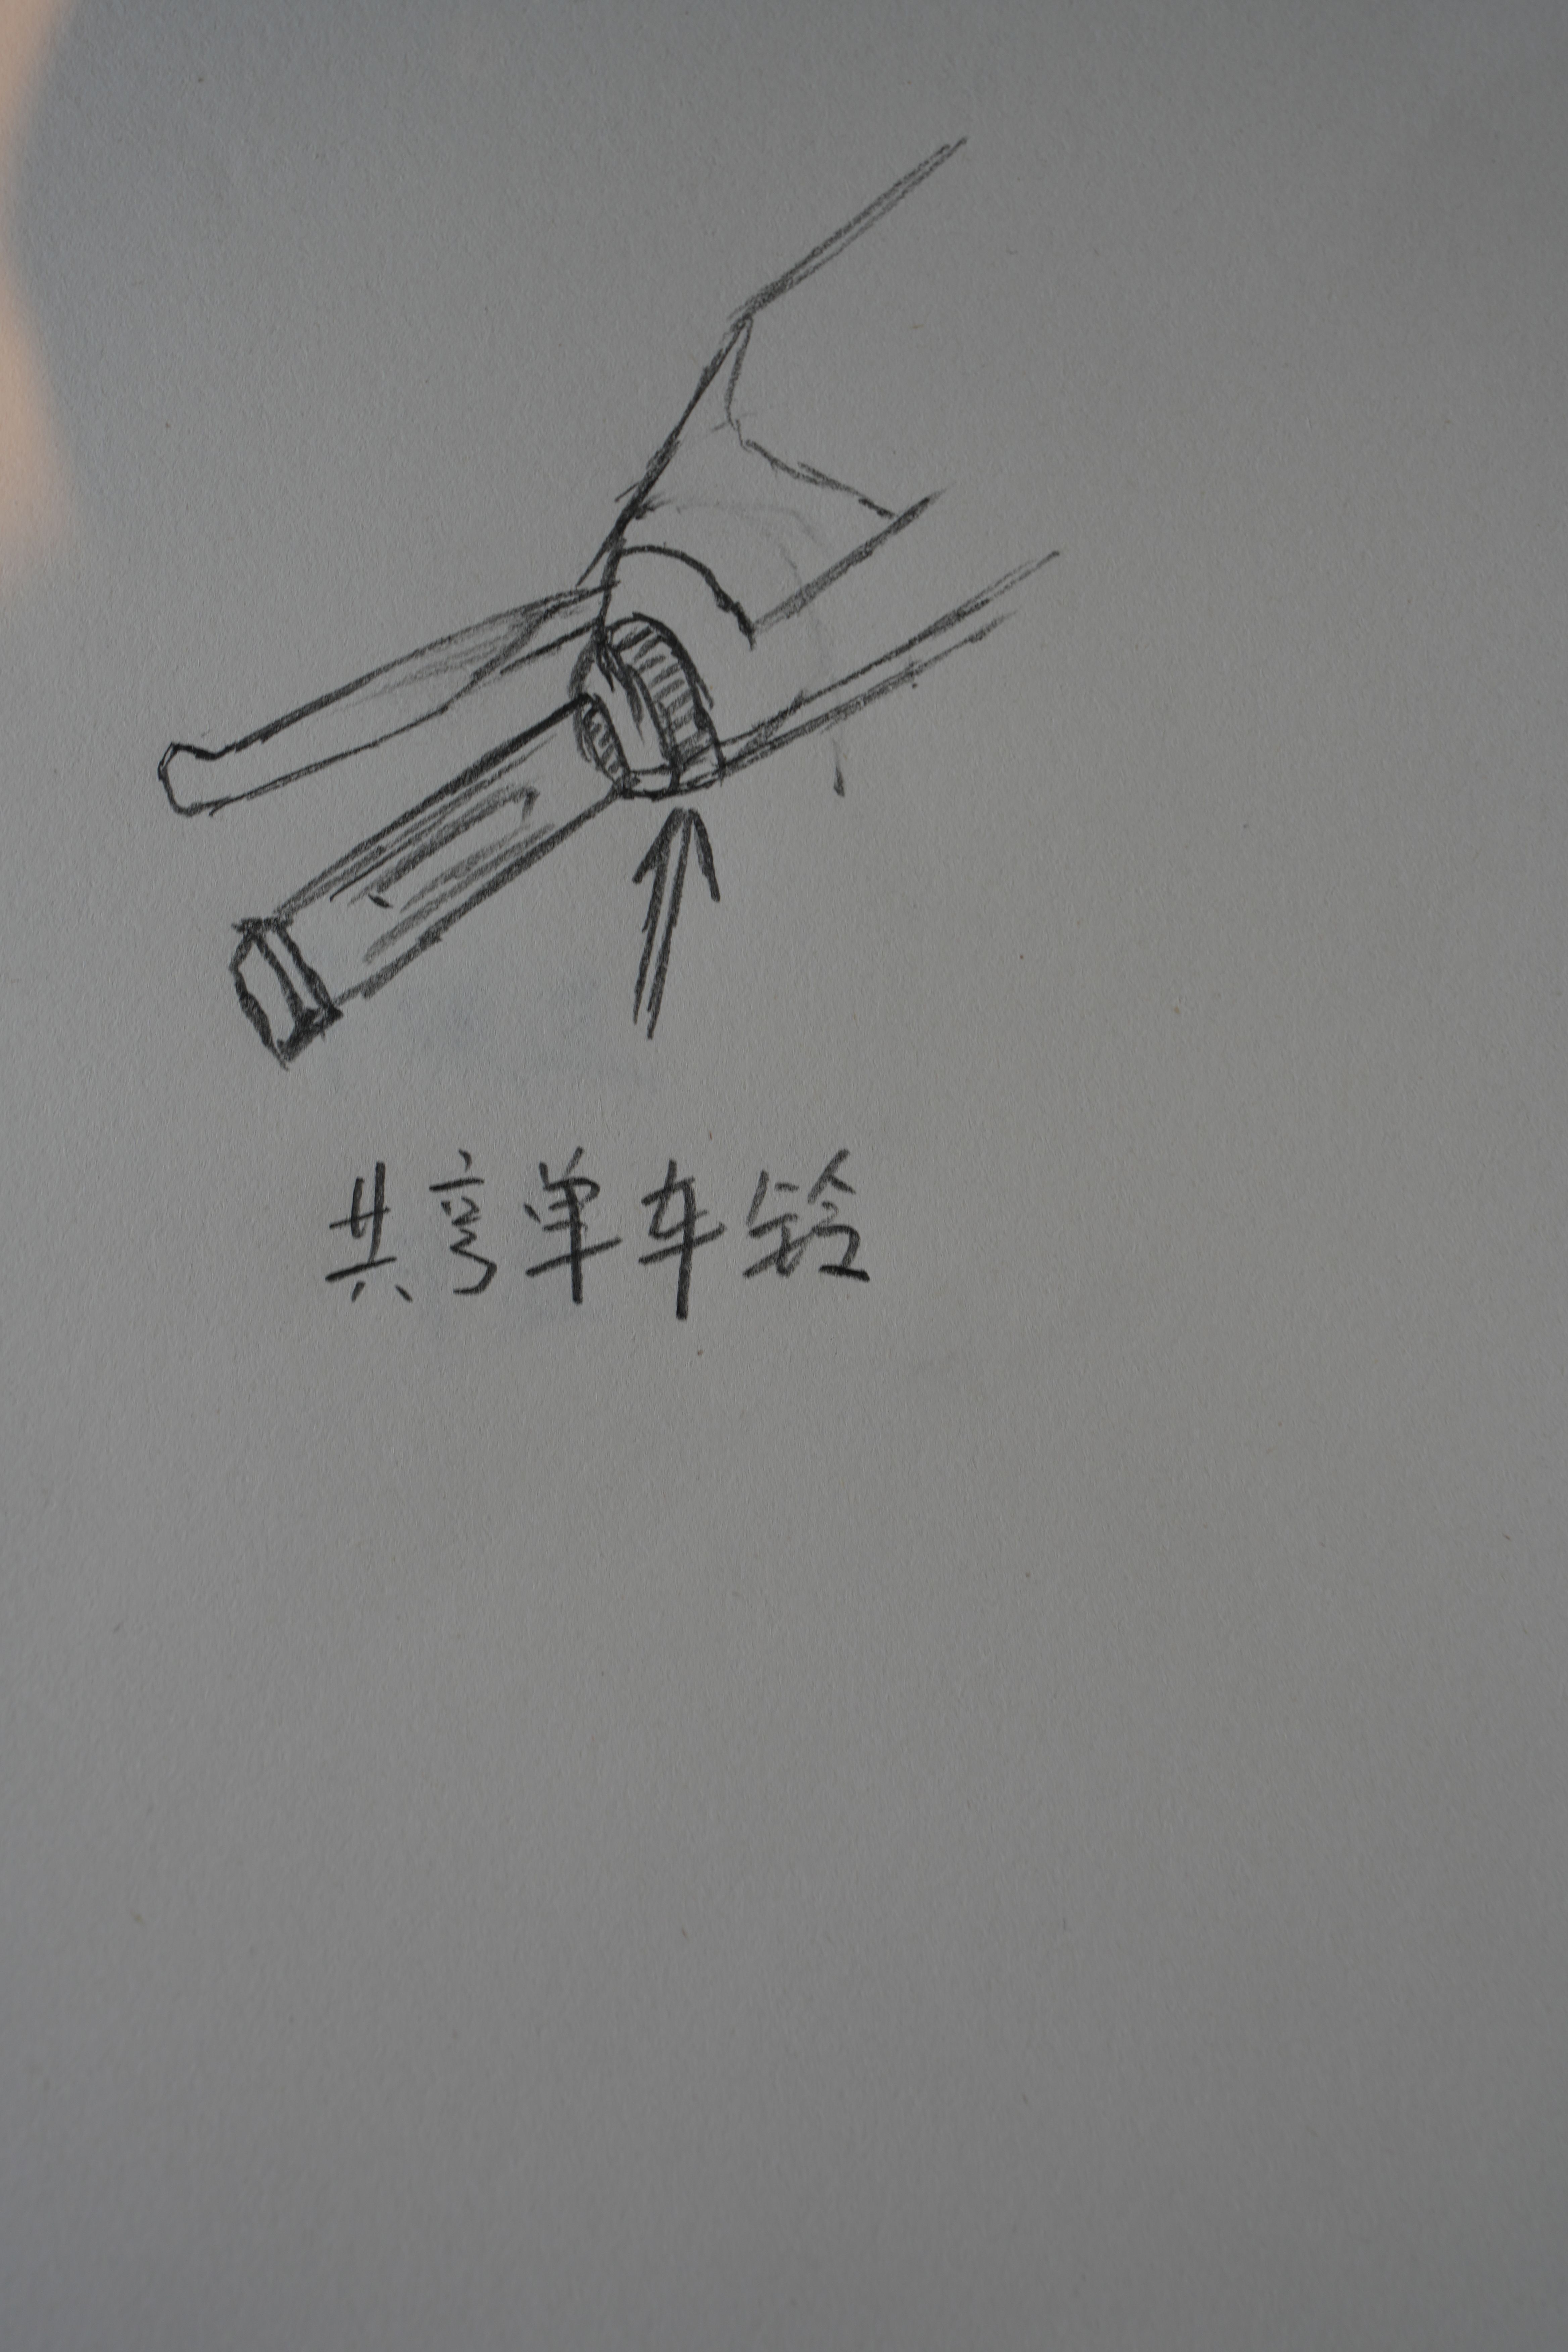 共享单车铃